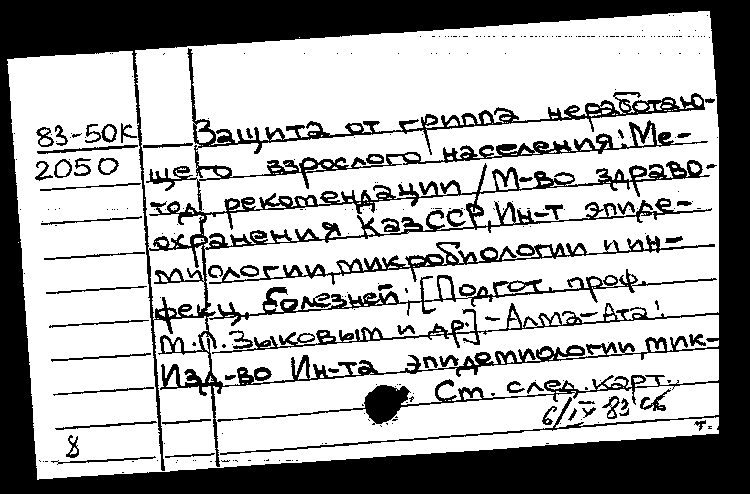 83-50К
2050
Защита от гриппа неработаю-
щего взрослого населения: Ме-
тод. рекомендации / М-во здраво-
охранения КазССР, Ин-т эпиде-
миологии, микробиологии и ин-
фекц. болезней; [Подгот. проф.
М.П. Зыковым и др.]. - Алма-Ата:
Изд-во Ин-та эпидемиологии, мик-
Ст. след. карт.
6/IV 83
8